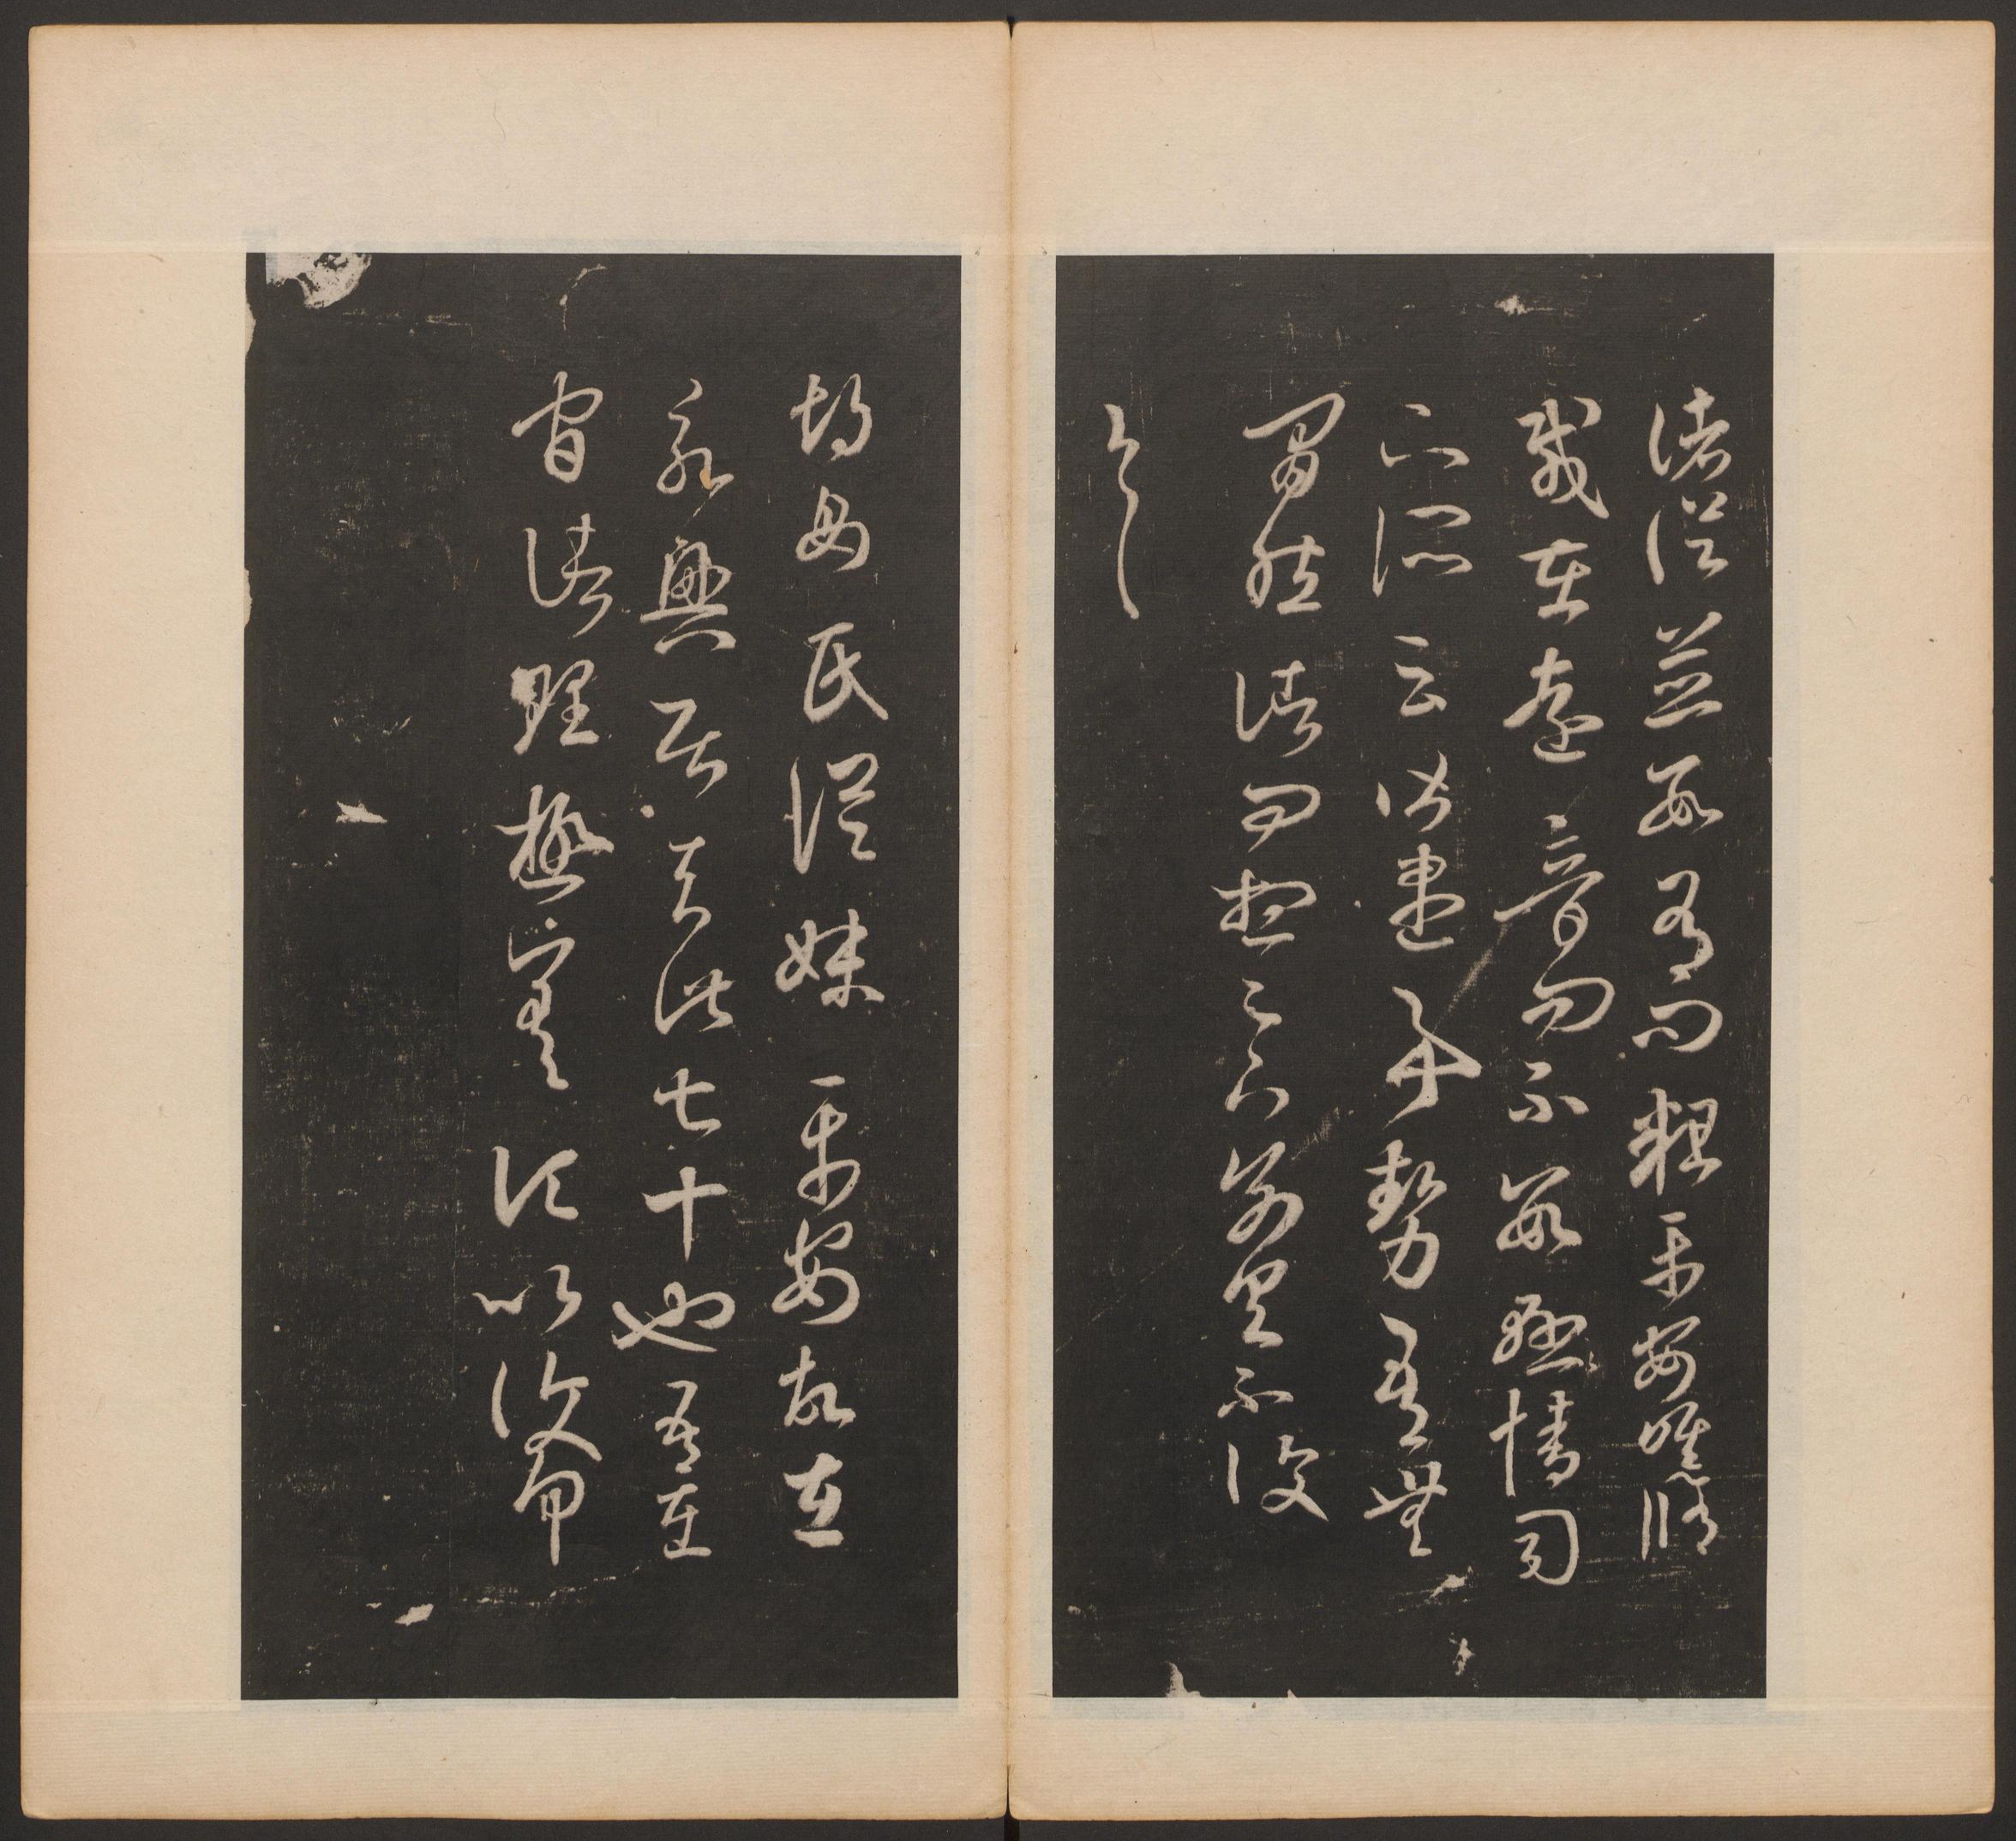 諸從並數有問粗平安唯脩
載在遠音問不數懸情司
下所云皆盡事勢吾無
間然諸問想足下別具不復
一一
胡母氏從妹平安故在
永興居去此七十也吾在
官諸理極差頃比復勿勿